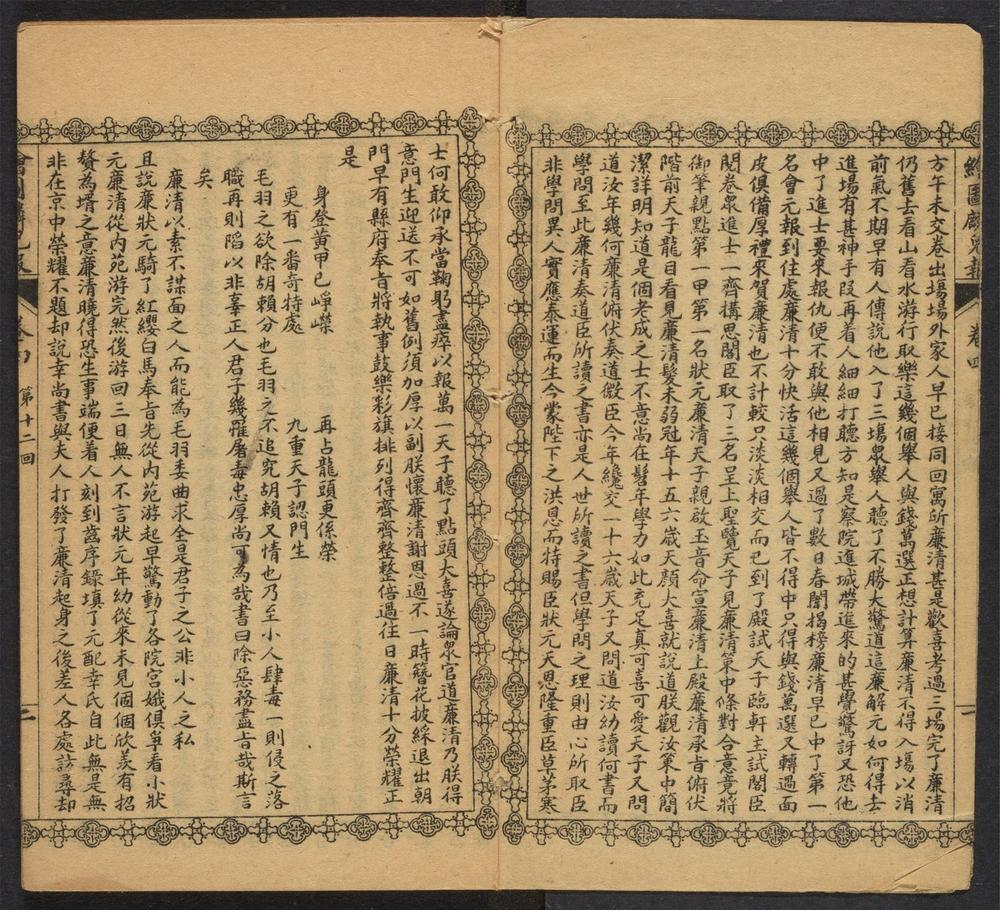 繪圖麟兒報 卷四 一
方午未交卷出場場外家人早已接同回寓所廉清甚是歡喜考過三場完了廉清
仍舊去看山看水游行取樂這幾個舉人與錢萬選正想計算廉清不得入場以消
前氣不期早有人傳說他入了三場眾舉人聽了不勝大驚道這廉解元如何得去
進場有甚神手段再着人細細打聽方知是察院進城帶進來的甚覺驚訝又恐他
中了進士要來報仇便不敢與他相見又過了數日春闈揭榜廉清早已中了第一
名會元報到住處廉清十分快活這幾個舉人皆不得中只得與錢萬選又轉過面
皮俱備厚禮來賀廉清也不計較只淡淡相交而已到了殿試天子臨軒主試閣臣
閱卷眾進士一齊構思閣臣取了三名呈上聖覽天子見廉清策中條對合意竟將
御筆親點第一甲第一名狀元廉清天子親啟玉音命宣廉清上殿廉清承旨俯伏
階前天子龍目看見廉清髮未弱冠年十五六歲天顏大喜就說道朕觀汝策中簡
潔詳明知道是個老成之士不意尚在髫年學力如此充足真可喜可愛天子又問
道汝年幾何廉清俯伏奏道微臣今年纔交一十六歲天子又問道汝幼讀何書而
學問至此廉清奏道臣所讀之書亦是人世所讀之書但學問之理則由心所取臣
非學問異人實應泰運而生今蒙陛下之洪恩而特賜臣狀元天恩隆重臣草茅寒
士何敢仰承當鞠躬盡瘁以報萬一天子聽了點頭大喜遂諭眾官道廉清乃朕得
意門生迎送不可如舊例須加厚以副朕懷廉清謝恩過不一時簪花披綵退出朝
門早有縣府奉旨將執事鼓樂彩旗排列得齊齊整整倍過往日廉清十分榮耀正
是
身登黃甲已崢嶸 再占龍頭更係榮
更有一番奇特處 九重天子認門生
毛羽之欲除胡賴分也毛羽之不追究胡賴又情也乃至小人肆毒一則侵之落
職再則陷以非辜正人君子幾罹屠毒忠厚尚可為哉書曰除惡務盡旨哉斯言
矣
廉清以素不謀面之人而能為毛羽委曲求全是君子之公非小人之私
且說廉狀元騎了紅纓白馬奉旨先從內苑游起早驚動了各院宮娥俱爭看小狀
元廉清從內苑游完然後游回三日無人不言狀元年幼從來未見個個欣羨有招
贅為壻之意廉清曉得恐生事端便着人刻到齒序錄填了元配幸氏自此無是無
非在京中榮耀不題却說幸尚書與夫人打發了廉清起身之後差人各處訪尋却
卷四 第十二回 二